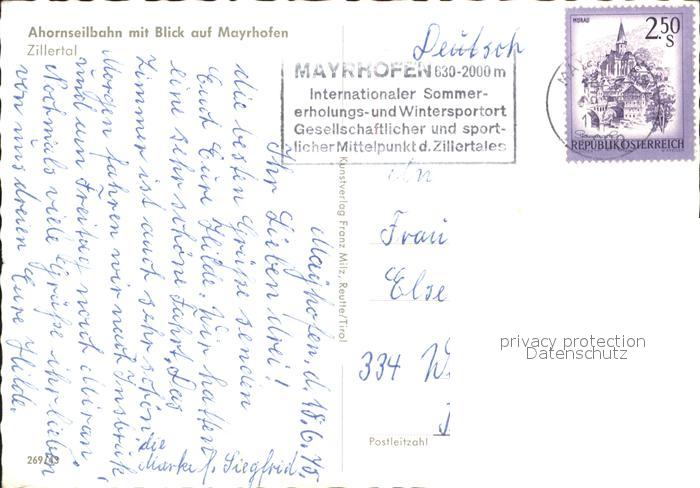 Ahornseilbahn mit Blick auf Mayrhofen
Zillertal
Mayrhofen, d. 18.6.75.
Ihr Lieben drei!
die besten Grüße senden
Euch Eure Hilde. Wir hatten
eine sehr schöne Fahrt. Das
Zimmer ist auch sehr schön.
Morgen fahren wir nach Insbruk,
und am Freitag nach Miran.
Nochmals viele Grüße ihr lieben
von uns dreien Eure Hilde.
die
Marke f. Siegfried.
269/43
Kunstverlag Franz Milz, Reutte/Tirol
Deutsch
MAYRHOFEN 630-2000m
Internationaler Sommer-
erholungs- und Wintersportort
Gesellschaftlicher und sport-
licher Mittelpunkt d. Zillertales
MURAU
2.50
S
REPUBLIK ÖSTERREICH
An
Frau
Else
334 W
Postleitzahl
privacy protection
Datenschutz